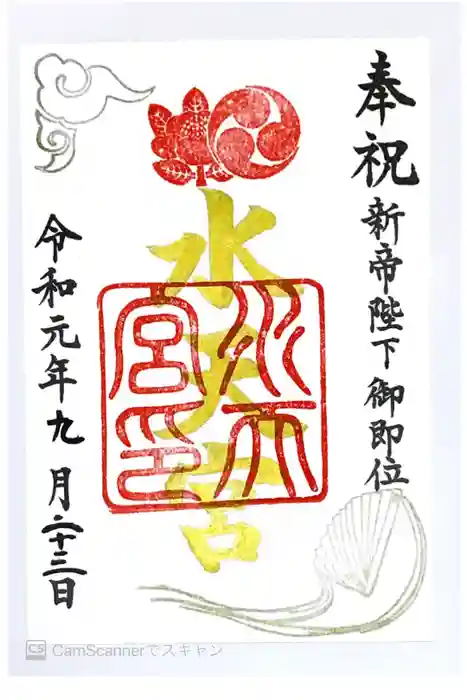 奉祝 新帝陛下御即位
水天宮
水天宮印
令和元年九月二十三日
CS CamScannerでスキャン